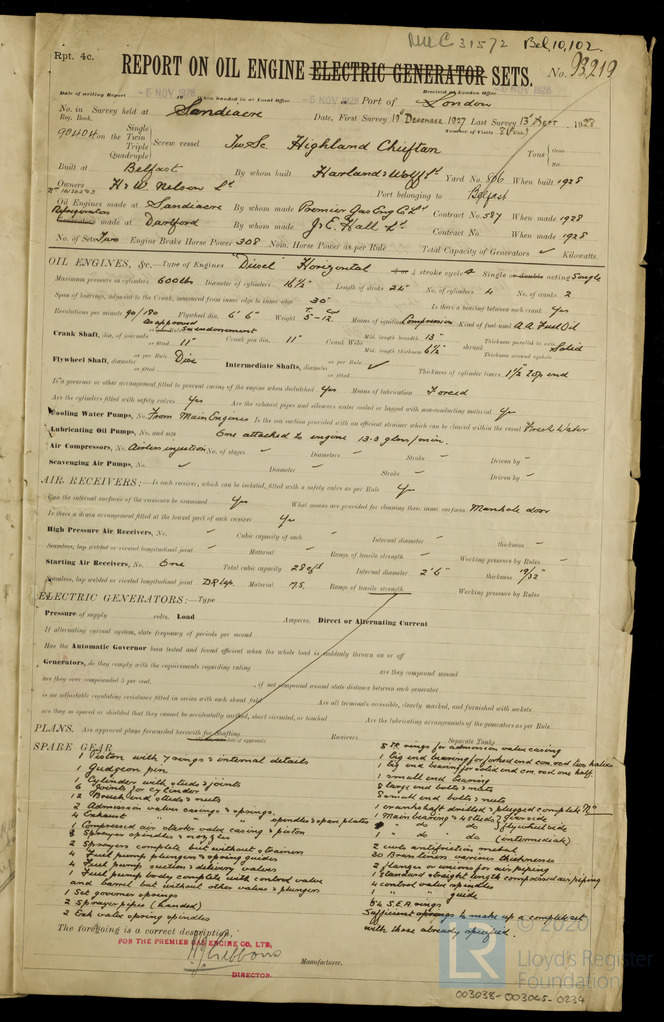 Rpt. 4c.
MUC 31572 Bel. 10,102.
REPORT ON OIL ENGINE ELECTRIC GENERATOR SETS. No. 93219
Date of writing Report 5 NOV 1928 When handed in at Local Office 5 NOV 1928 Port of London
Received at London Office
No. in Survey held at Sandiacre Date, First Survey 19th December 1927 Last Survey 13th Sept. 1928
Reg. Book. Number of Visits
90404 on the Single Twin Triple Quadruple Screw vessel Tw Sc Highland Chieftan Tons Gross Net
Built at Belfast By whom built Harland & Wolff Ld Yard No. 806 When built 1928
Owners H & W. Nelson Ld Port belonging to Belfast
Oil Engines made at Sandiacre By whom made Premier Gas Eng Co Ld Contract No. 587 When made 1928
Refrigerators Generators made at Dartford By whom made J & E. Hall Ld. Contract No. When made 1928
No. of Sets Two Engine Brake Horse Power 308 Nom. Horse Power as per Rule Total Capacity of Generators ✓ Kilowatts.
OIL ENGINES, &c.—Type of Engines "Diesel" Horizontal 2 or 4 stroke cycle 4 Single or double acting Single
Maximum pressure in cylinders 600 lbs Diameter of cylinders 16½" Length of stroke 24" No. of cylinders 4 No. of cranks 2
Span of bearings, adjacent to the Crank, measured from inner edge to inner edge 30" Is there a bearing between each crank Yes
Revolutions per minute 90/180 Flywheel dia. 6' 6" Weight 5-12 Means of ignition Compression Kind of fuel used A.A. Fuel Oil
Crank Shaft, dia. of journals as per Rule As approved See endorsement as fitted 11" Crank pin dia. 11" Crank Webs Mid. length breadth 13" Mid. length thickness 6½" shrunk Thickness parallel to axis Solid Thickness around eyehole
Flywheel Shaft, diameter as per Rule as fitted Disc Intermediate Shafts, diameter as per Rule as fitted ✓ Thickness of cylinder liners 1½" top end
Is a governor or other arrangement fitted to prevent racing of the engine when declutched Yes Means of lubrication Forced
Are the cylinders fitted with safety valves Yes Are the exhaust pipes and silencers water cooled or lagged with non-conducting material Yes
Cooling Water Pumps, No. From Main Engines Is the sea suction provided with an efficient strainer which can be cleared within the vessel Fresh Water
Lubricating Oil Pumps, No. and size One attached to engine 13.3 glns/min.
Air Compressors, No. Airless injection No. of stages – Diameters – Stroke – Driven by –
Scavenging Air Pumps, No. ✓ Diameter – Stroke – Driven by –
AIR RECEIVERS:—Is each receiver, which can be isolated, fitted with a safety valve as per Rule Yes
Can the internal surfaces of the receivers be examined Yes What means are provided for cleaning their inner surfaces Manhole door
Is there a drain arrangement fitted at the lowest part of each receiver Yes
High Pressure Air Receivers, No. – Cubic capacity of each – Internal diameter – thickness –
Seamless, lap welded or riveted longitudinal joint – Material – Range of tensile strength – Working pressure by Rules –
Starting Air Receivers, No. One Total cubic capacity 28 cft Internal diameter 2' 6" thickness 19/32"
Seamless, lap welded or riveted longitudinal joint D.R. lap. Material M.S. Range of tensile strength Working pressure by Rules
ELECTRIC GENERATORS:—Type
Pressure of supply volts. Load Amperes. Direct or Alternating Current
If alternating current system, state frequency of periods per second
Has the Automatic Governor been tested and found efficient when the whole load is suddenly thrown on or off
Generators, do they comply with the requirements regarding rating are they compound wound
are they over compounded 5 per cent. , if not compound wound state distance between each generator
is an adjustable regulating resistance fitted in series with each shunt field Are all terminals accessible, clearly marked, and furnished with sockets
are they so spaced or shielded that they cannot be accidentally earthed, short circuited, or touched Are the lubricating arrangements of the generators as per Rule
PLANS. Are approved plans forwarded herewith for Shafting Receivers Separate Tanks
SPARE GEAR
1 Piston with 7 rings & internal details
1 Gudgeon pin
1 Cylinder with studs & joints
6 Joints for cylinder
12 Breech end studs & nuts
2 Admission valves casings & springs.
4 Exhaust " " " spindles & span plates
1 Compressed air starter valve casing & piston
8 Sprayer spindles & nozzles
2 Sprayers complete but without strainers
4 Fuel pump plungers & spring guides
4 Fuel pump suction & delivery valves
1 Fuel pump body complete with control valve
and barrel but without other valves & plungers
1 Set governor springs
2 Sprayer pipes (handed)
2 Exh valve spring spindles
5 TR rings for admission valve casing
1 big end bearing for forked end con. rod two halves
1 big end bearing for solid end con. rod one half
1 small end bearing
8 large end bolts & nuts
5 small end bolts & nuts
1 crankshaft drilled & plugged complete
1 Main bearing & 4 studs } gear side
" do do } flywheel side
" do do (intermediate)
2 cwts antifriction metal
30 Brass liners various thicknesses
2 flanges or unions for air piping
1 Standard straight length compressed air piping
4 control valve spindles
1 " " guide
64 S.E.A. rings
Sufficient springs to make up a complete set
with those already specified.
The foregoing is a correct description,
FOR THE PREMIER GAS ENGINE CO, LTD,
Gibbons
DIRECTOR. Manufacturer.
© 2020
LR Lloyd's Register
Foundation
003038-003045-0234